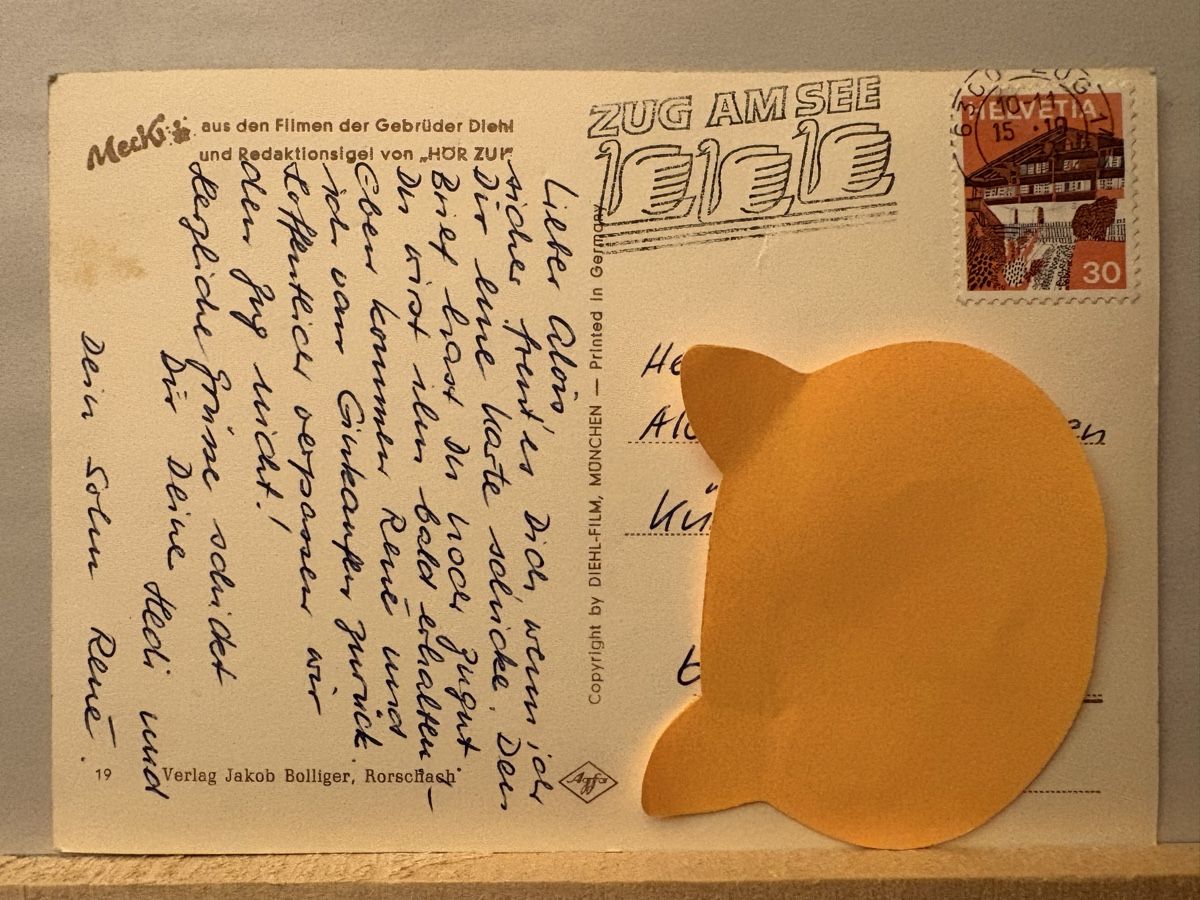 Mecki
aus den Filmen der Gebrüder Diehl
und Redaktionsigel von „HÖR ZU!"
Lieber Alois
sicher freut's Dich wenn ich
Dir eine Karte schicke. Den
Brief hast Du noch zugut.
Du wirst ihn bald erhalten. –
Eben kommen René und
ich vom Einkaufen zurück.
Hoffentlich verpassen wir
den Zug nicht!
Herzliche Grüsse schickt
Dir Deine Hedi und
Dein Sohn René.
19 Verlag Jakob Bolliger, Rorschach
Copyright by DIEHL-FILM, MÜNCHEN — Printed in Germany
Agfa
ZUG AM SEE
ZUG 1
HELVETIA
30
He
Alo en
Kü